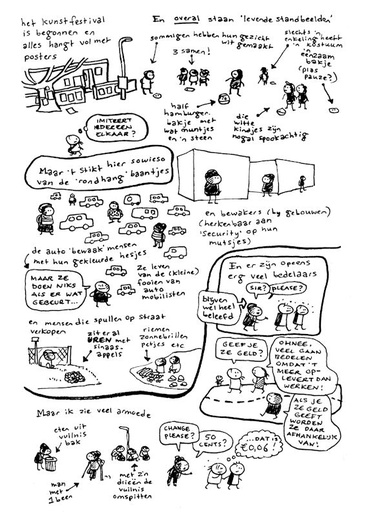 het kunstfestival
is begonnen en
alles hangt vol met
posters
En overal staan 'levende standbeelden'
sommigen hebben hun gezicht
wit gemaakt
3 samen!
slechts 'n
enkeling heeft
'n kostuum
eenzaam
bakje
(plas
pauze?)
half
hamburger
bakje met
wat muntjes
en 'n steen
die
witte
kindjes zijn
nogal spookachtig
IMITEERT
IEDEREEN
ELKAAR?
Maar 't stikt hier sowieso
van de 'rondhang' baantjes
en bewakers (bij gebouwen)
(herkenbaar aan
'security' op hun
mutsjes)
de auto 'bewaak' mensen
met hun gekleurde hesjes
MAAR ZE
DOEN NIKS
ALS ER WAT
GEBEURT...
ze leven
van de (kleine)
fooien van
auto
mobilisten
en mensen die spullen op straat
verkopen
zit er al
UREN met
sinaas-
appels
riemen
zonnebrillen
petjes etc
En er zijn opeens
erg veel bedelaars
SIR?
PLEASE?
blijven
wel heel
beleefd
GEEF JE
ZE GELD?
OH NEE,
VEEL GAAN
BEDELEN
OMDAT 'T
MEER OP-
LEVERT DAN
WERKEN!
ALS JE
ZE GELD
GEEFT
WORDEN
ZE DAAR
AFHANKELIJK
VAN!
Maar ik zie veel armoede
eten uit
vuilnis
bak
man
met
1 been
met z'n
drieën de
vuilnis
omspitten
CHANGE
PLEASE?
50
CENTS?
...DAT IS
€0,06!